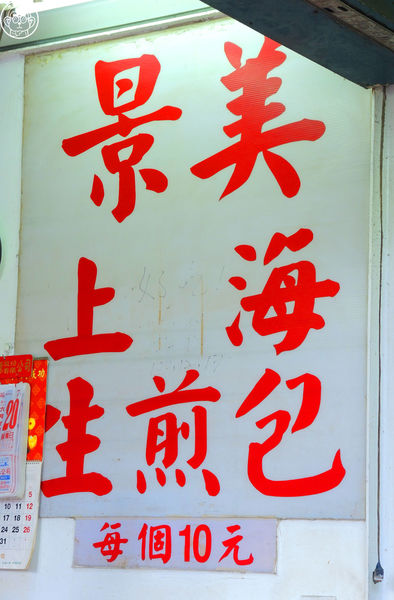 景美
上海
生煎包
每個10元
20
5
10 11 12
17 18 19
24 25 26
31